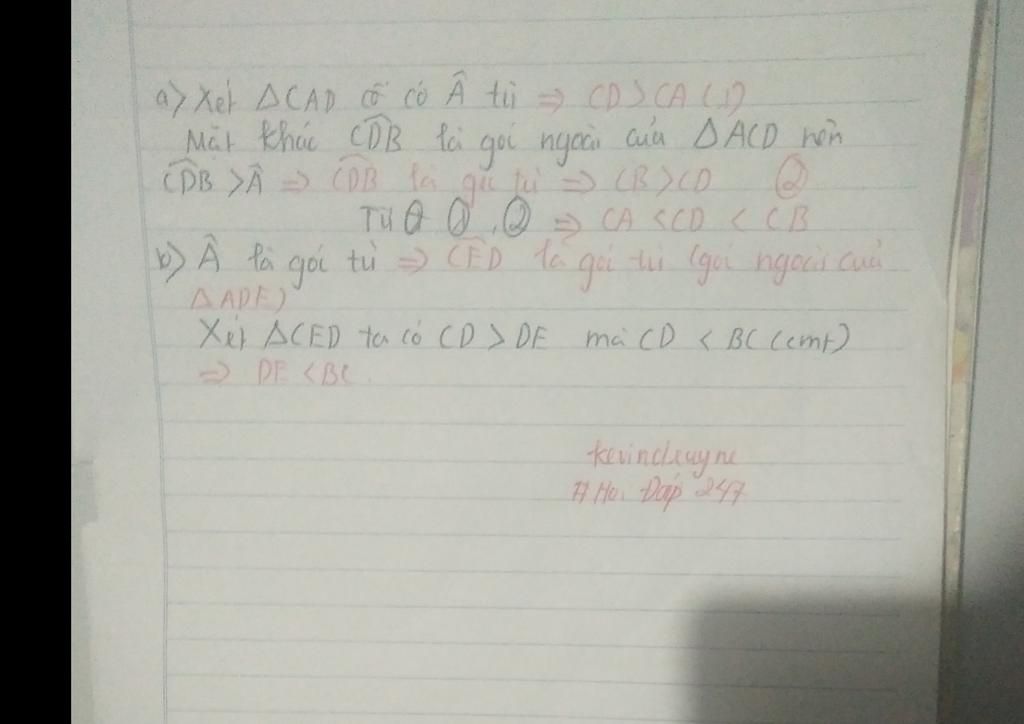 a) Xét ΔCAD cố có Â tù ⇒ CD > CA (1)
Mặt khác CDB là gói ngoài của ΔACD nên
CDB > Â ⇒ CDB là góc tù ⇒ CB > CD ②
Từ ① , ② ⇒ CA < CD < CB
b) Â là gói tù ⇒ CED là gói tù (gói ngoài của
ΔADE)
Xét ΔCED ta có CD > DE mà CD < BC (cmt)
⇒ DE < BC.
# Hoi Đáp 247